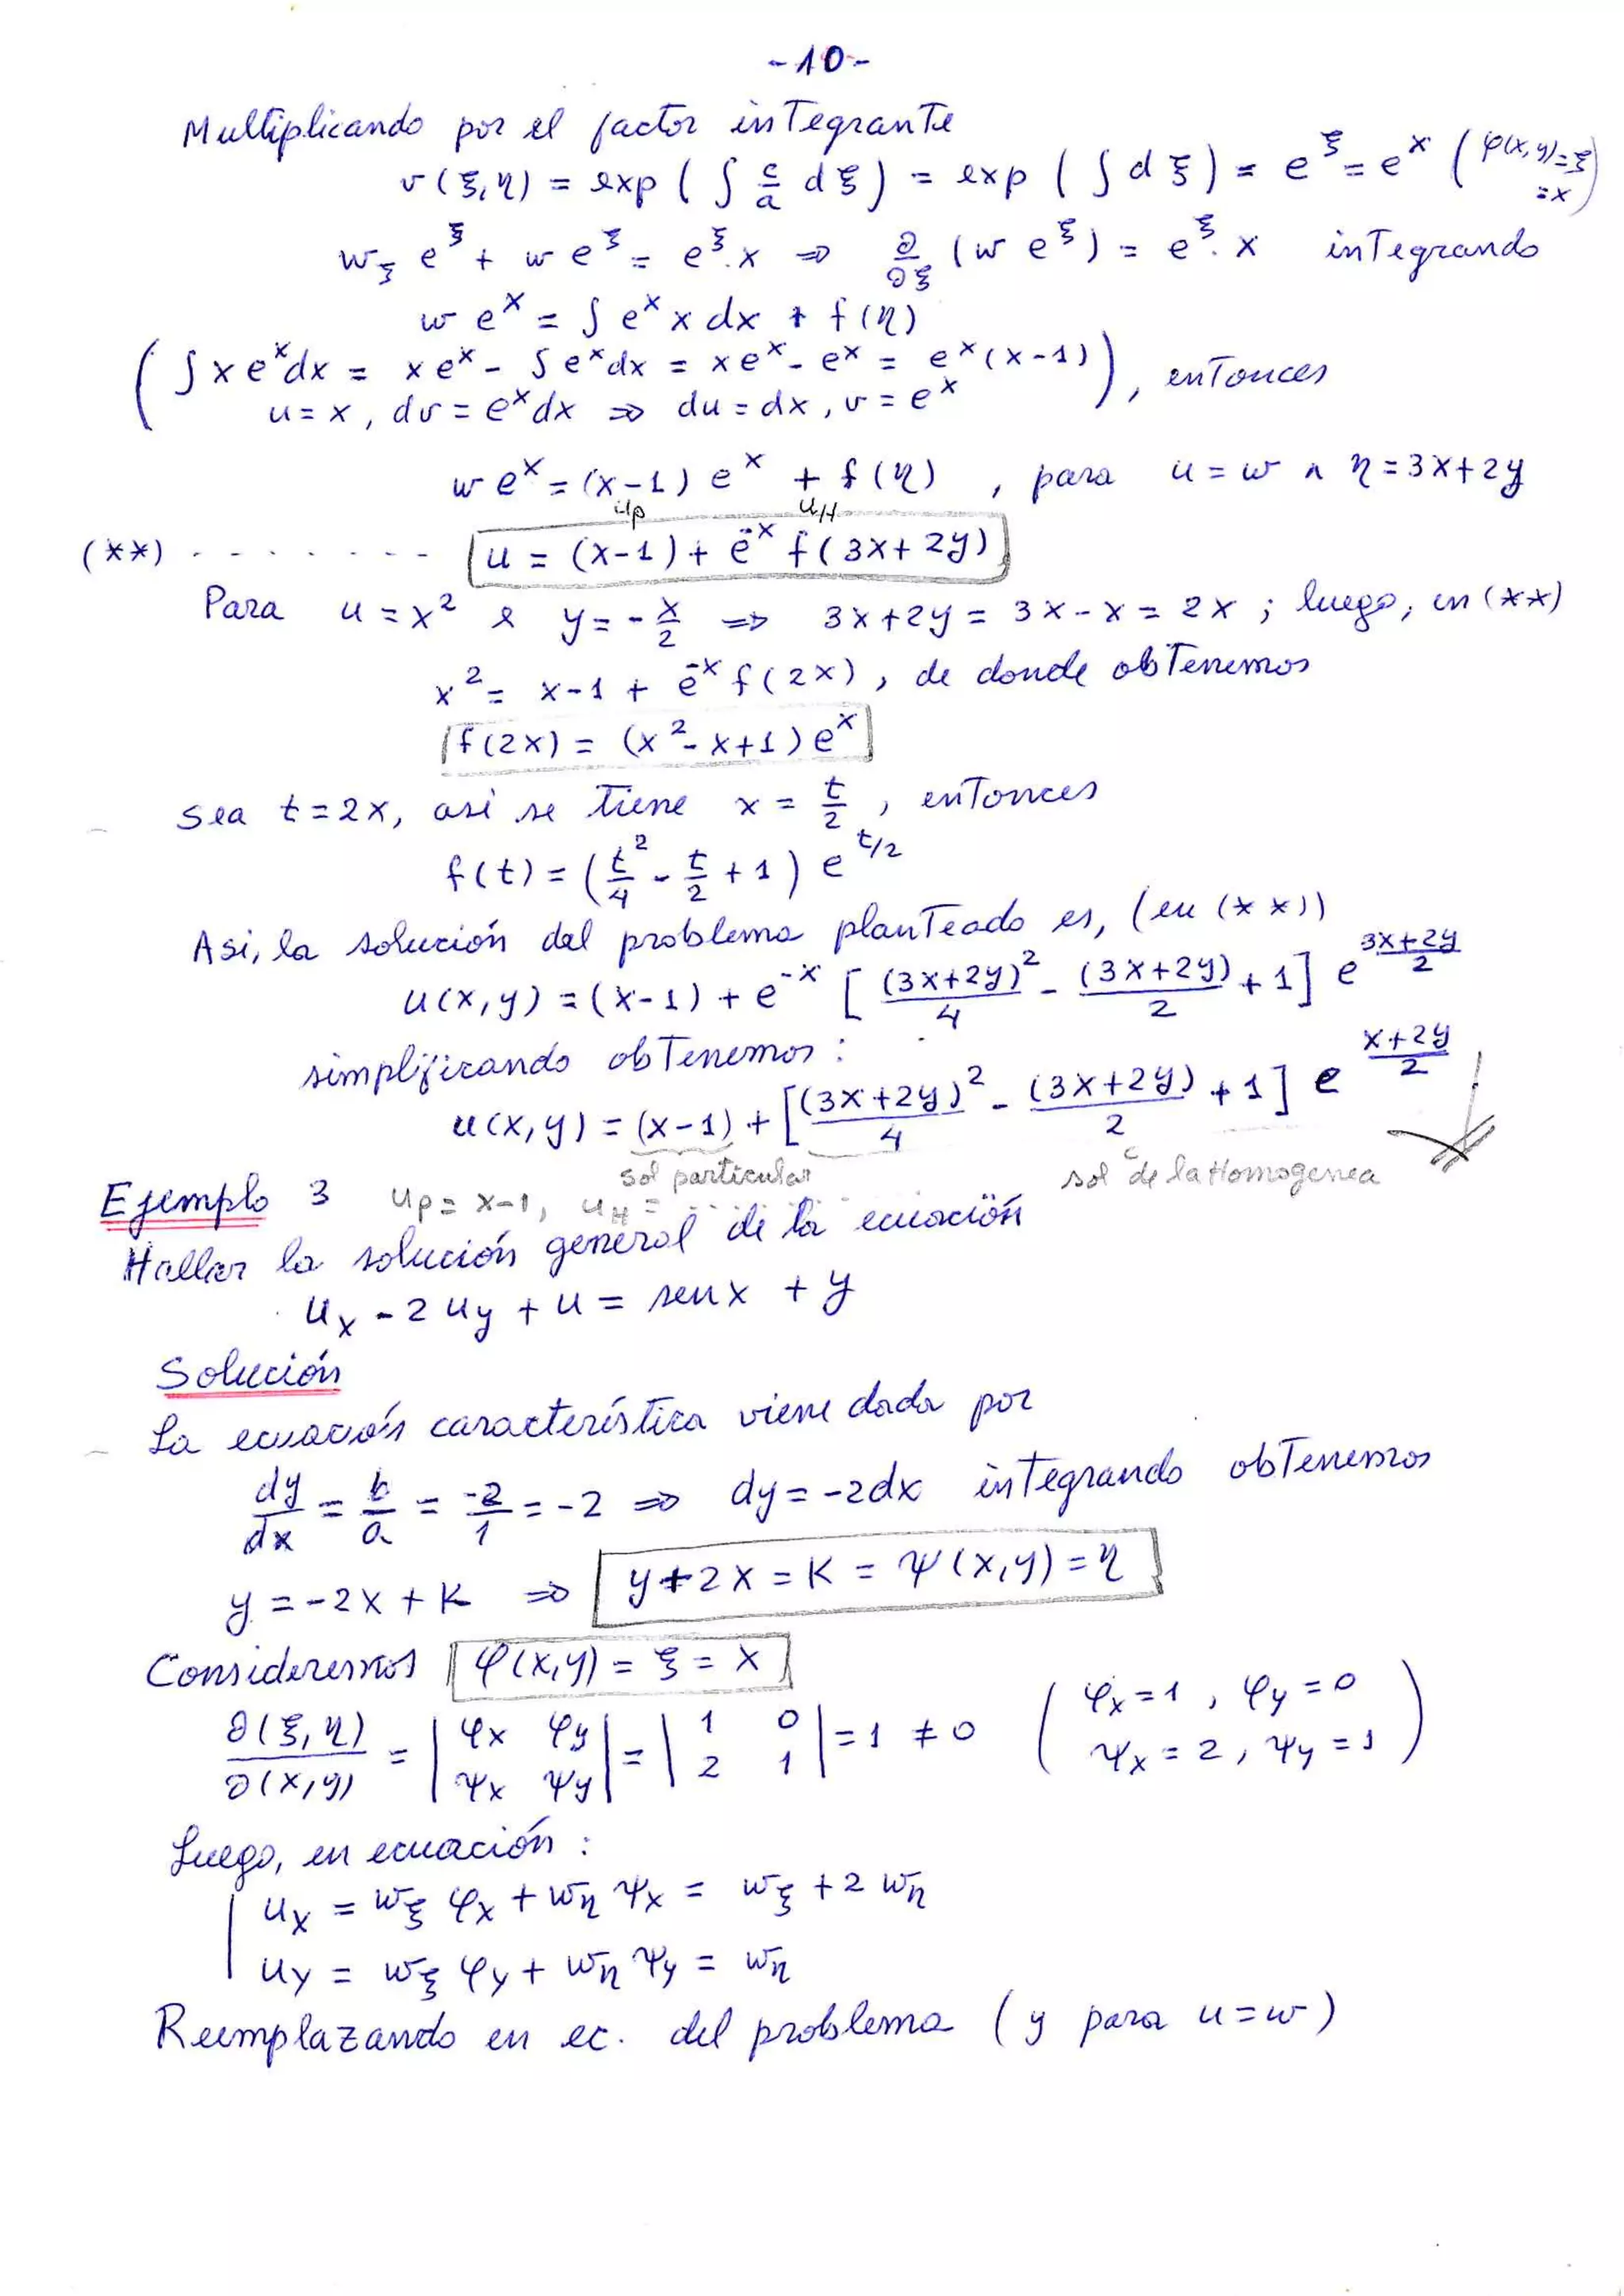 -10-
Multiplicando por el factor integrante
v(ξ,η) = exp(∫ c/a dξ) = exp(∫dξ) = e^ξ = e^x (φ(x,y)=ξ =x)
w_ξ e^ξ + w e^ξ = e^ξ . x ⇒ ∂/∂ξ (w e^ξ) = e^ξ . x integrando
w e^x = ∫ e^x x dx + f(η)
(∫ x e^x dx = x e^x - ∫ e^x dx = x e^x - e^x = e^x (x-1)), entonces
u = x, dv = e^x dx ⇒ du = dx, v = e^x
w e^x = (x-1) e^x + f(η), para u = w ∧ η = 3x+2y
up uH
(**) - - - - - - - u = (x-1) + e^-x f(3x+2y)
Para u = x^2 & y = -x/2 ⇒ 3x+2y = 3x-x = 2x ; luego, en (**)
x^2 = x-1 + e^-x f(2x), de donde obtenemos
f(2x) = (x^2 - x+1) e^x
sea t = 2x, asi se tiene x = t/2, entonces
f(t) = (t^2/4 - t/2 + 1) e^t/2
Asi, la solución del problema planteado es, (en (**))
u(x,y) = (x-1) + e^-x [(3x+2y)^2/4 - (3x+2y)/2 + 1] e^(3x+2y)/2
simplificando obtenemos :
u(x,y) = (x-1) + [(3x+2y)^2/4 - (3x+2y)/2 + 1] e^(x+2y)/2
sol particular sol de la Homogenea
Ejemplo 3 up = x-1, uH = ........
Hallar la solución general de la ecuación
u_x - 2u_y + u = sen x + y
Solución
La ecuación característica viene dada por
dy/dx = b/a = -2/1 = -2 ⇒ dy = -2dx integrando obtenemos
y = -2x + K ⇒ y+2x = K = ψ(x,y) = η
Consideremos φ(x,y) = ξ = x
∂(ξ,η)/∂(x,y) = |φx φy ψx ψy| = |1 0 2 1| = 1 ≠ 0 (φx = 1, φy = 0 ψx = 2, ψy = 1)
Luego, en ecuación :
u_x = w_ξ φx + w_η ψx = w_ξ + 2 w_η
u_y = w_ξ φy + w_η ψy = w_η
Reemplazando en ec. del problema (y para u = w)